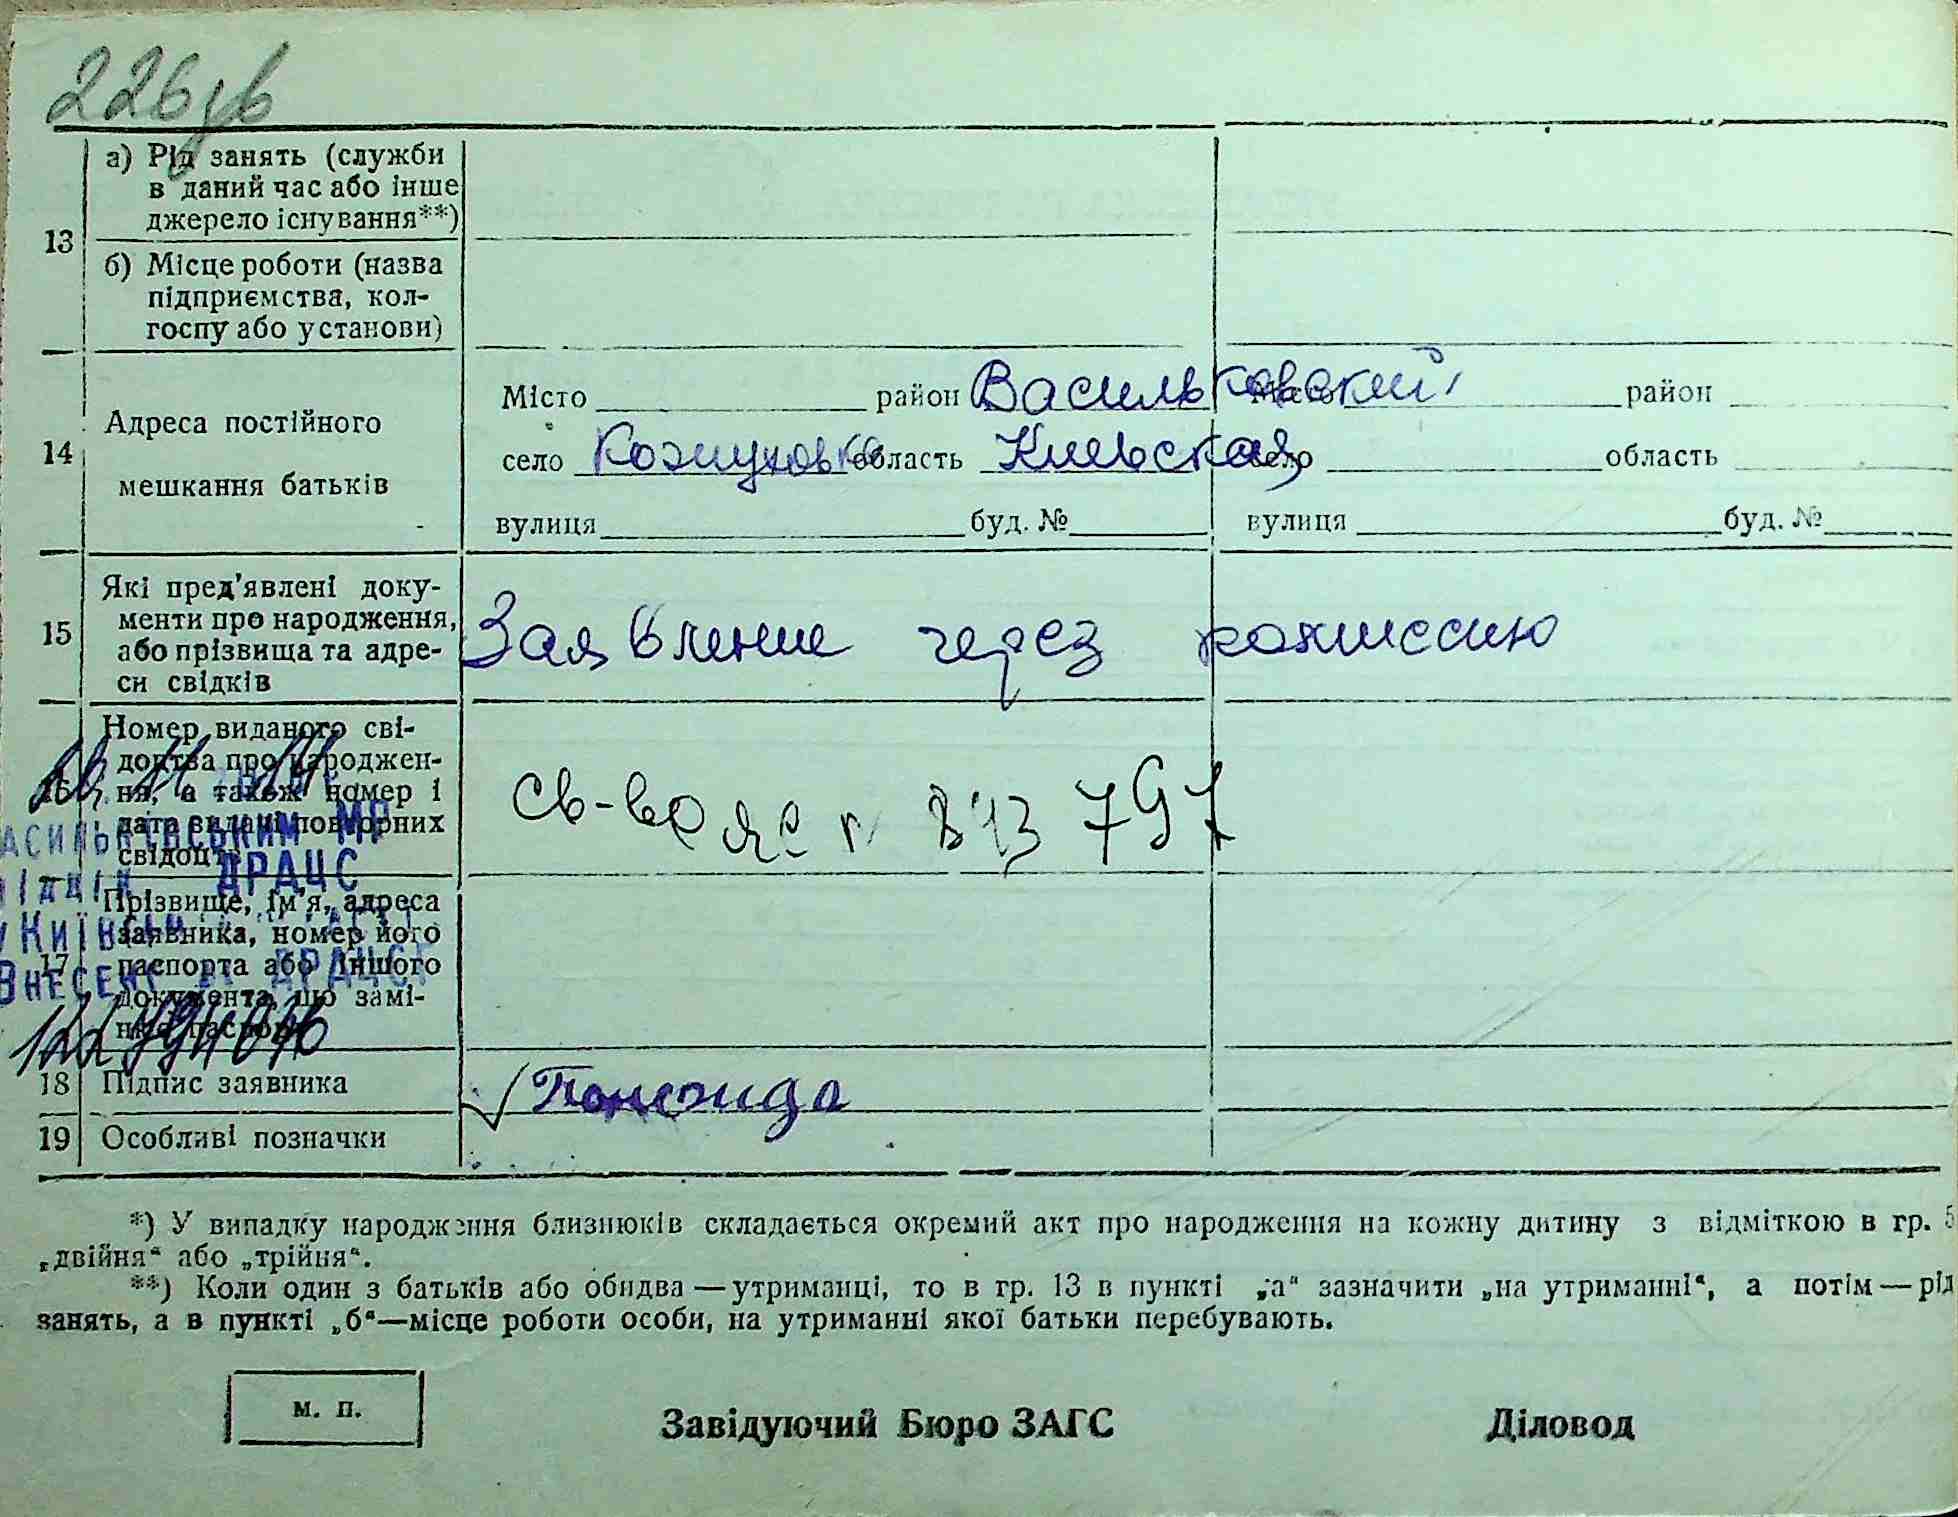 226зв
а) Рід занять (служби
в даний час або інше
джерело існування**)
13
б) Місце роботи (назва
підприємства, кол-
госпу або установи)
Місто район Васильковский Місто район
14 Адреса постійного
село Кожуховка область Киевская село область
мешкання батьків
вулиця буд. № вулиця буд. №
Які пред’явлені доку-
менти про народження,
15 Заявление через комиссию
або прізвища та адре-
си свідків
Номер виданого сві-
доцтва про народжен-
16 ня, а також номер і
дата видачі повторних
свідоцтв
св-во яс № 813 797
АСИЛЬКІВСЬКИМ МР
ВІДДІЛ ДРАЦС
Прізвище, ім’я, адреса
заявника, номер його
17 паспорта або іншого
документа, що замі-
нює паспорт
ВНЕСЕНО ДРАЦСГ
18 Підпис заявника
19 Особливі позначки
*) У випадку народження близнюків складається окремий акт про народження на кожну дитину з відміткою в гр. 5
„двійня“ або „трійня“.
**) Коли один з батьків або обидва — утриманці, то в гр. 13 в пункті „а“ зазначити „на утриманні“, а потім — рід
занять, а в пункті „б“—місце роботи особи, на утриманні якої батьки перебувають.
м. п. Завідуючий Бюро ЗАГС Діловод